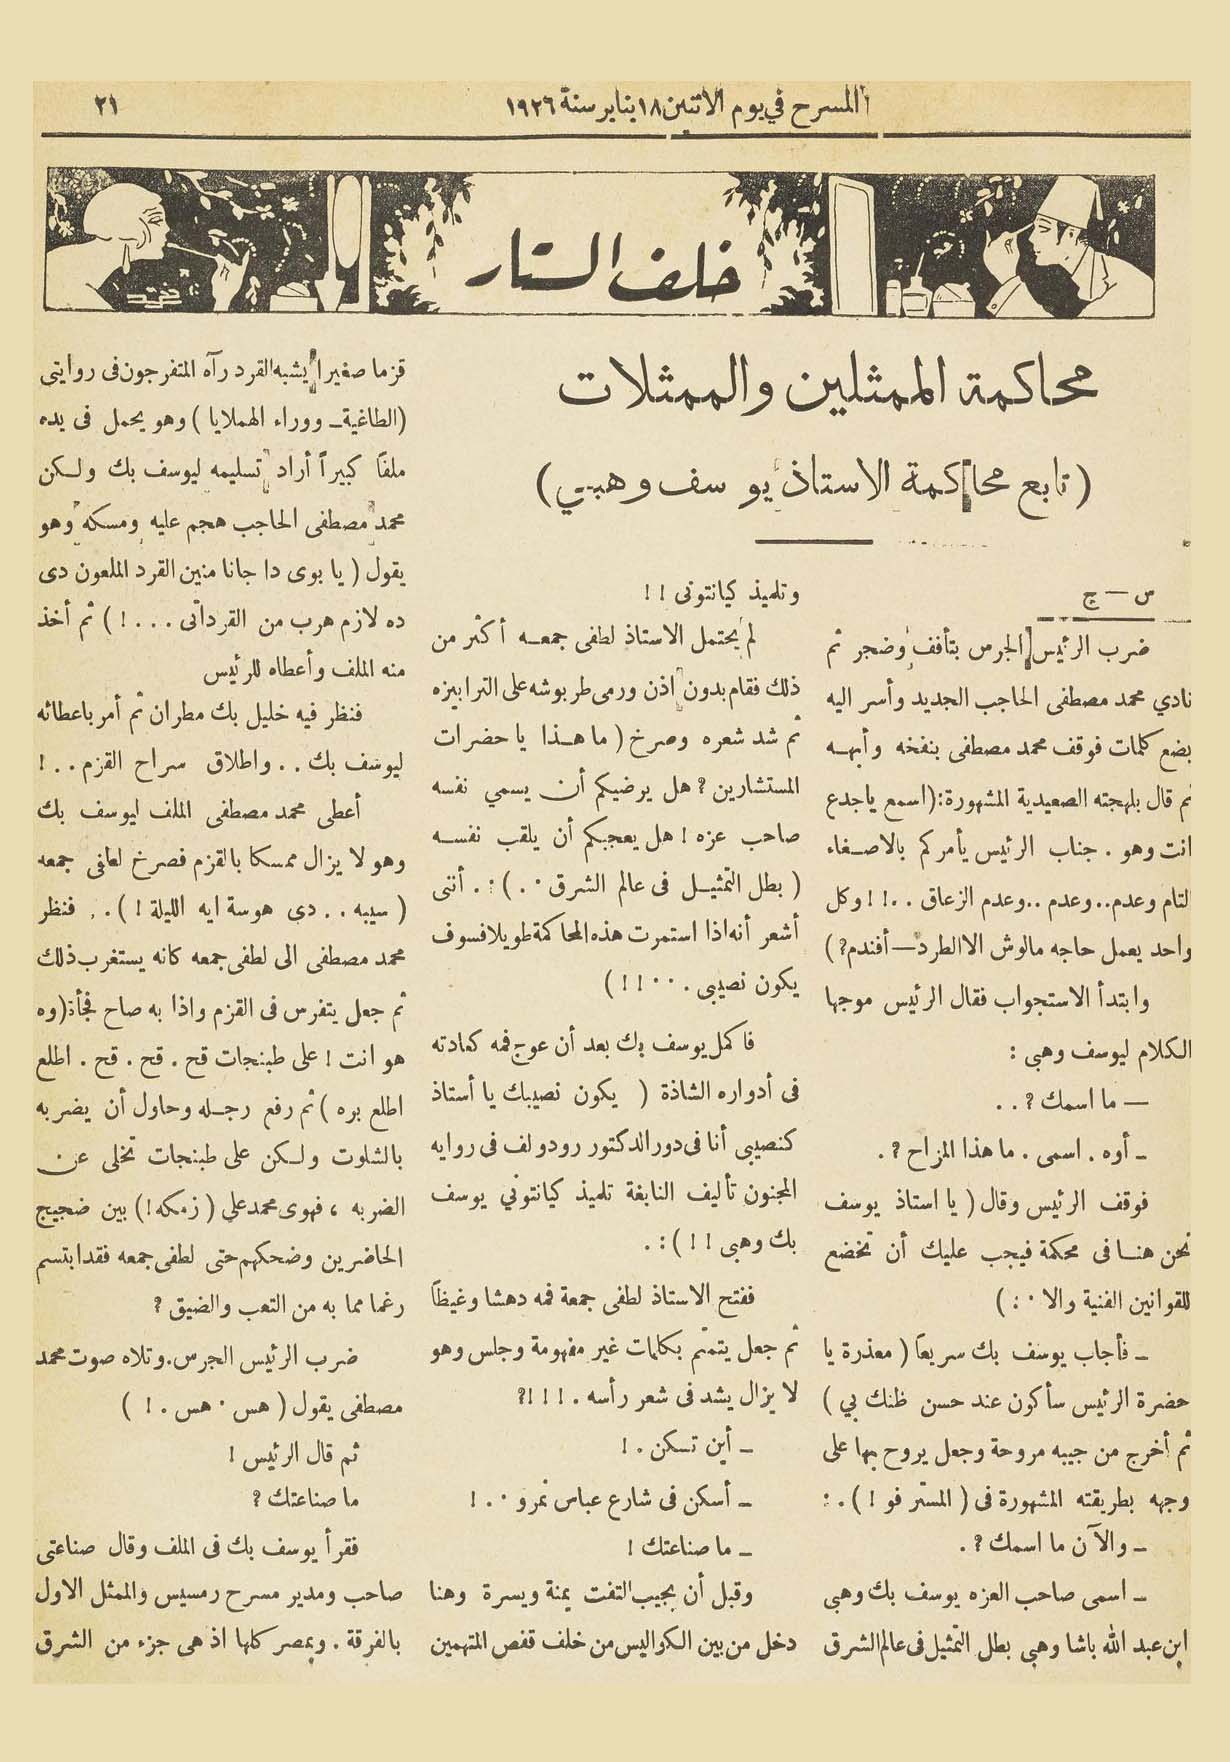 المسرح في يوم الاثنين ١٨ يناير سنة ١٩٢٦
٢١
خلف الستار
محاكمة الممثلين والممثلات
(تابع محاكمة الاستاذ يوسف وهبي)
س — ج
ضرب الرئيس الجرس بتأفف وضجر ثم
نادي محمد مصطفى الحاجب الجديد وأسر اليه
بضع كلمات فوقف محمد مصطفى بنفخه وأبهه
ثم قال بلهجته الصعيدية المشهورة: (اسمع ياجدع
انت وهو . جناب الرئيس يأمركم بالاصغاء
التام وعدم.. وعدم .. وعدم الزعاق ..!! وكل
واحد يعمل حاجه مالوش الا الطرد — أفندم؟)
وابتدأ الاستجواب فقال الرئيس موجها
الكلام ليوسف وهبى :
— ما اسمك ؟ . .
ـ أوه . اسمى . ما هذا المزاح ؟ .
فوقف الرئيس وقال ( يا استاذ يوسف
نحن هنا فى محكمة فيجب عليك أن تخضع
للقوانين الفنية والا . : )
ـ فأجاب يوسف بك سريعاً ( معذرة يا
حضرة الرئيس سأكون عند حسن ظنك بي )
ثم أخرج من جيبه مروحة وجعل يروح بها على
وجهه بطريقته المشهورة فى ( المستر فو ! ) . :
ـ والآن ما اسمك ؟ .
ـ اسمى صاحب العزه يوسف بك وهبى
ابن عبد الله باشا وهبى بطل التمثيل فى عالم الشرق
وتلميذ كيانتونى ! !
لم يحتمل الاستاذ لطفى جمعه أكثر من
ذلك فقام بدون اذن ورمى طربوشه على الترابيزه
ثم شد شعره وصرخ ( ما هذا يا حضرات
المستشارين ؟ هل يرضيكم أن يسمي نفسه
صاحب عزه ! هل يعجبكم أن يلقب نفسه
( بطل التمثيل فى عالم الشرق . . ) : . أننى
أشعر أنه اذا استمرت هذه المحاكمة طويلا فسوف
يكون نصيبى . . . ! ! )
فاكمل يوسف بك بعد أن عوج فمه كعادته
فى أدواره الشاذة ( يكون نصيبك يا أستاذ
كنصيبى أنا فى دور الدكتور رودولف فى روايه
المجنون تأليف النابغة تلميذ كيانتوني يوسف
بك وهبى ! ! ) : .
ففتح الاستاذ لطفى جمعة فمه دهشا وغيظاً
ثم جعل يتمتم بكلمات غير مفهومة وجلس وهو
لا يزال يشد فى شعر رأسه . ! ! !؟
ـ أين تسكن . !
ـ أسكن فى شارع عباس نمرو . . !
ـ ما صناعتك !
وقبل أن يجيب التفت يمنة ويسرة وهنا
دخل من بين الكواليس من خلف قفص المتهمين
قزما صغيرا يشبه القرد رآه المتفرجون فى روايتى
(الطاغية ـ ووراء الهملايا ) وهو يحمل فى يده
ملفا كبيراً أراد تسليمه ليوسف بك ولكن
محمد مصطفى الحاجب هجم عليه ومسكه وهو
يقول ( يا بوى دا جانا منين القرد الملعون دى
ده لازم هرب من القرداتى . . . ! ) ثم أخذ
منه الملف وأعطاه للرئيس
فنظر فيه خليل بك مطران ثم أمر باعطائه
ليوسف بك . . واطلاق سراح القزم . . !
أعطى محمد مصطفى الملف ليوسف بك
وهو لا يزال ممسكا بالقزم فصرخ لطفى جمعه
( سيبه . . دى هوسة ايه الليلة ! ) . . فنظر
محمد مصطفى الى لطفى جمعه كانه يستغرب ذلك
ثم جعل يتفرس فى القزم واذا به صاح فجأة (وه
هو انت ! على طبنجات قح . قح . قح . اطلع
اطلع بره ) ثم رفع رجله وحاول أن يضربه
بالشلوت ولكن على طبنجات تخلى عن
الضربه ، فهوى محمد علي ( زمكه ! ) بين ضجيج
الحاضرين وضحكهم حتى لطفى جمعه فقد ابتسم
رغما مما به من التعب والضيق ؟
ضرب الرئيس الجرس . وتلاه صوت محمد
مصطفى يقول ( هس . هس . ! )
ثم قال الرئيس !
ما صناعتك ؟
فقرأ يوسف بك فى الملف وقال صناعتى
صاحب ومدير مسرح رمسيس والممثل الاول
بالفرقة . وبمصر كلها اذ هى جزء من الشرق